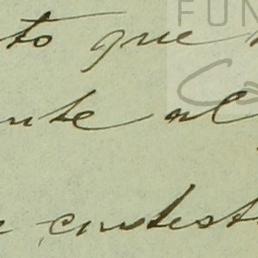 to que
nte al
contest
FUN